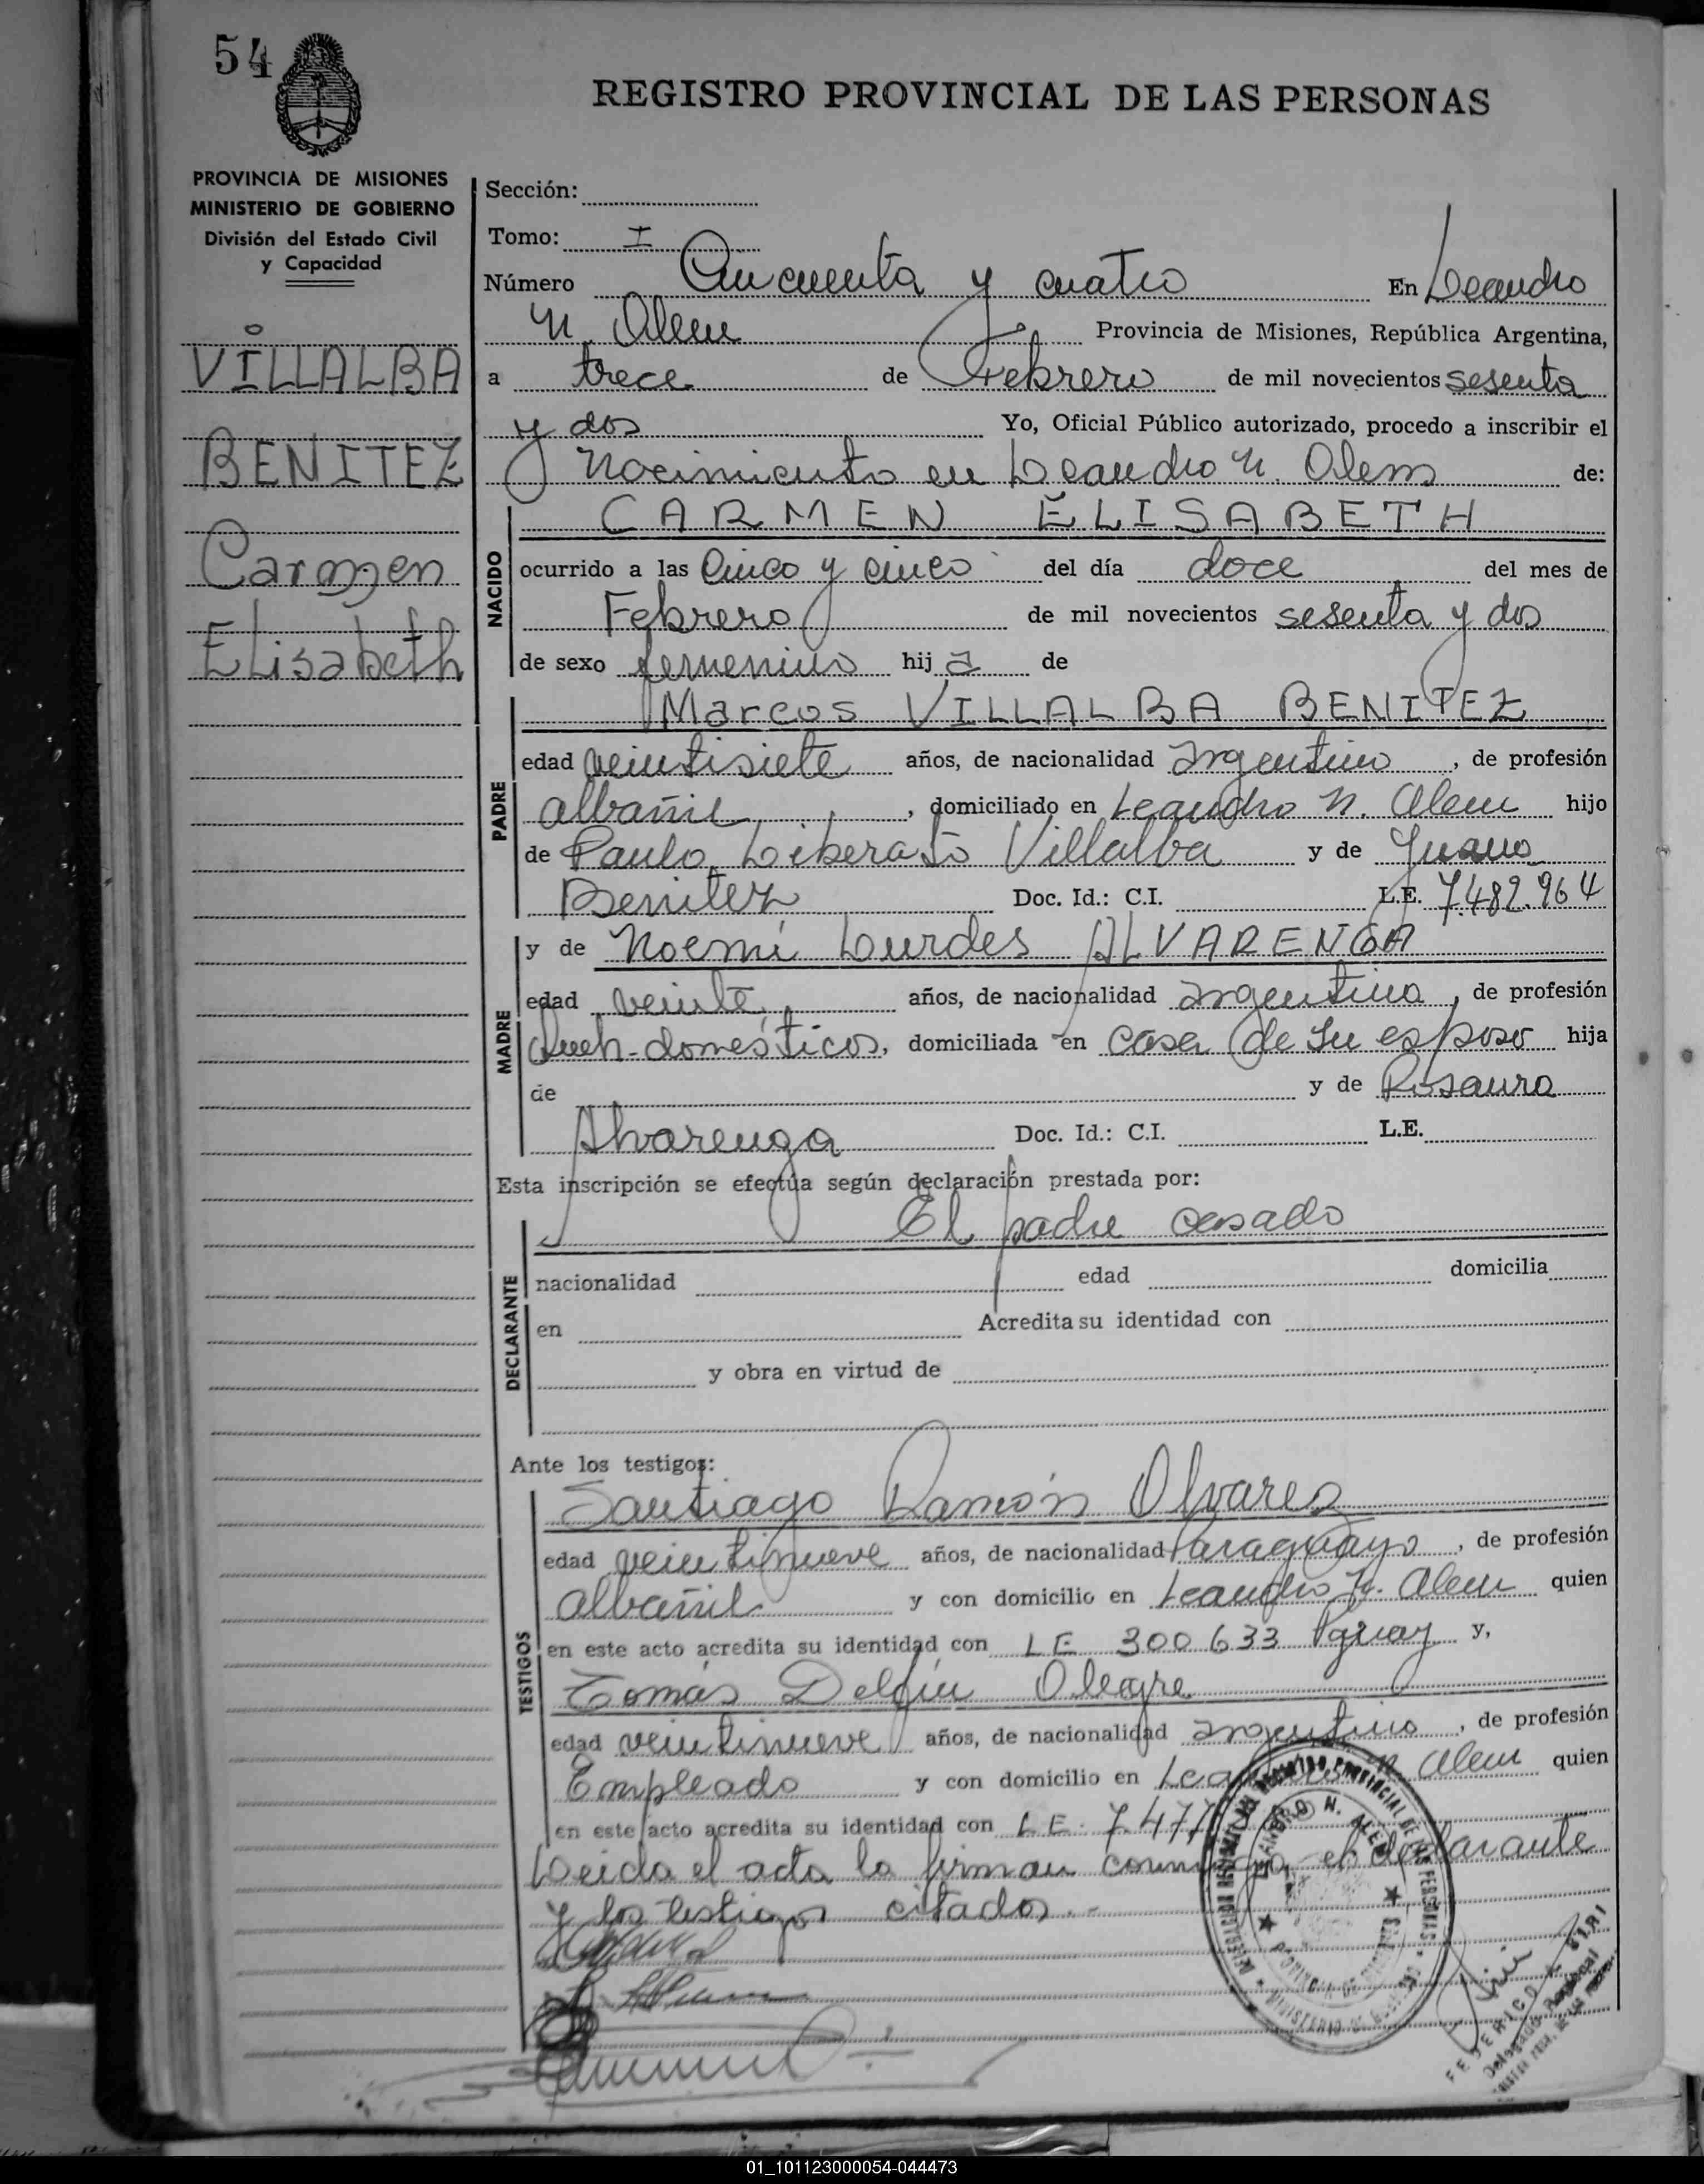 54
REGISTRO PROVINCIAL DE LAS PERSONAS
PROVINCIA DE MISIONES
MINISTERIO DE GOBIERNO
División del Estado Civil
y Capacidad
VILLALBA
BENITEZ
Carmen
Elisabeth
Sección:
Tomo: I
Número Cincuenta y cuatro En Leandro
N. Alem Provincia de Misiones, República Argentina,
a trece de Febrero de mil novecientos sesenta
y dos Yo, Oficial Público autorizado, procedo a inscribir el
Nacimiento en Leandro N. Alem de:
NACIDO
CARMEN ELISABETH
ocurrido a las Cinco y cinco del día doce del mes de
Febrero de mil novecientos sesenta y dos
de sexo femenino hij a de
PADRE
Marcos VILLALBA BENITEZ
edad veintisiete años, de nacionalidad argentino, de profesión
albañil, domiciliado en Leandro N. Alem hijo
de Paulo Liberato Villalba y de Juana
Benitez Doc. Id.: C.I. L.E. 7.482.964
MADRE
y de Noemí Lurdes ALVARENGA
edad veinte años, de nacionalidad argentina, de profesión
Queh-domésticos, domiciliada en casa de su esposo hija
de y de Rosaura
Alvarenga Doc. Id.: C.I. L.E.
Esta inscripción se efectúa según declaración prestada por:
DECLARANTE
El padre casado
nacionalidad edad domicilia
en Acredita su identidad con
y obra en virtud de
Ante los testigos:
TESTIGOS
Santiago Ramón Alvarez
edad veintinueve años, de nacionalidad Paraguayo, de profesión
albañil y con domicilio en Leandro N. Alem quien
en este acto acredita su identidad con LE 300633 Pguay y,
Tomás Delfín Alegre
edad veintinueve años, de nacionalidad argentino, de profesión
Empleado y con domicilio en Leandro N. Alem quien
en este acto acredita su identidad con LE. 7.477
Leida el acta la firman conmigo, el declarante
y los testigos citados.-
REGISTRO PROVINCIAL DE LAS PERSONAS
LEANDRO N. ALEM
PROVINCIA DE MISIONES
MINISTERIO DE GOBIERNO
FEDERICO A. BIRI
Delegado Regional
01_101123000054-044473